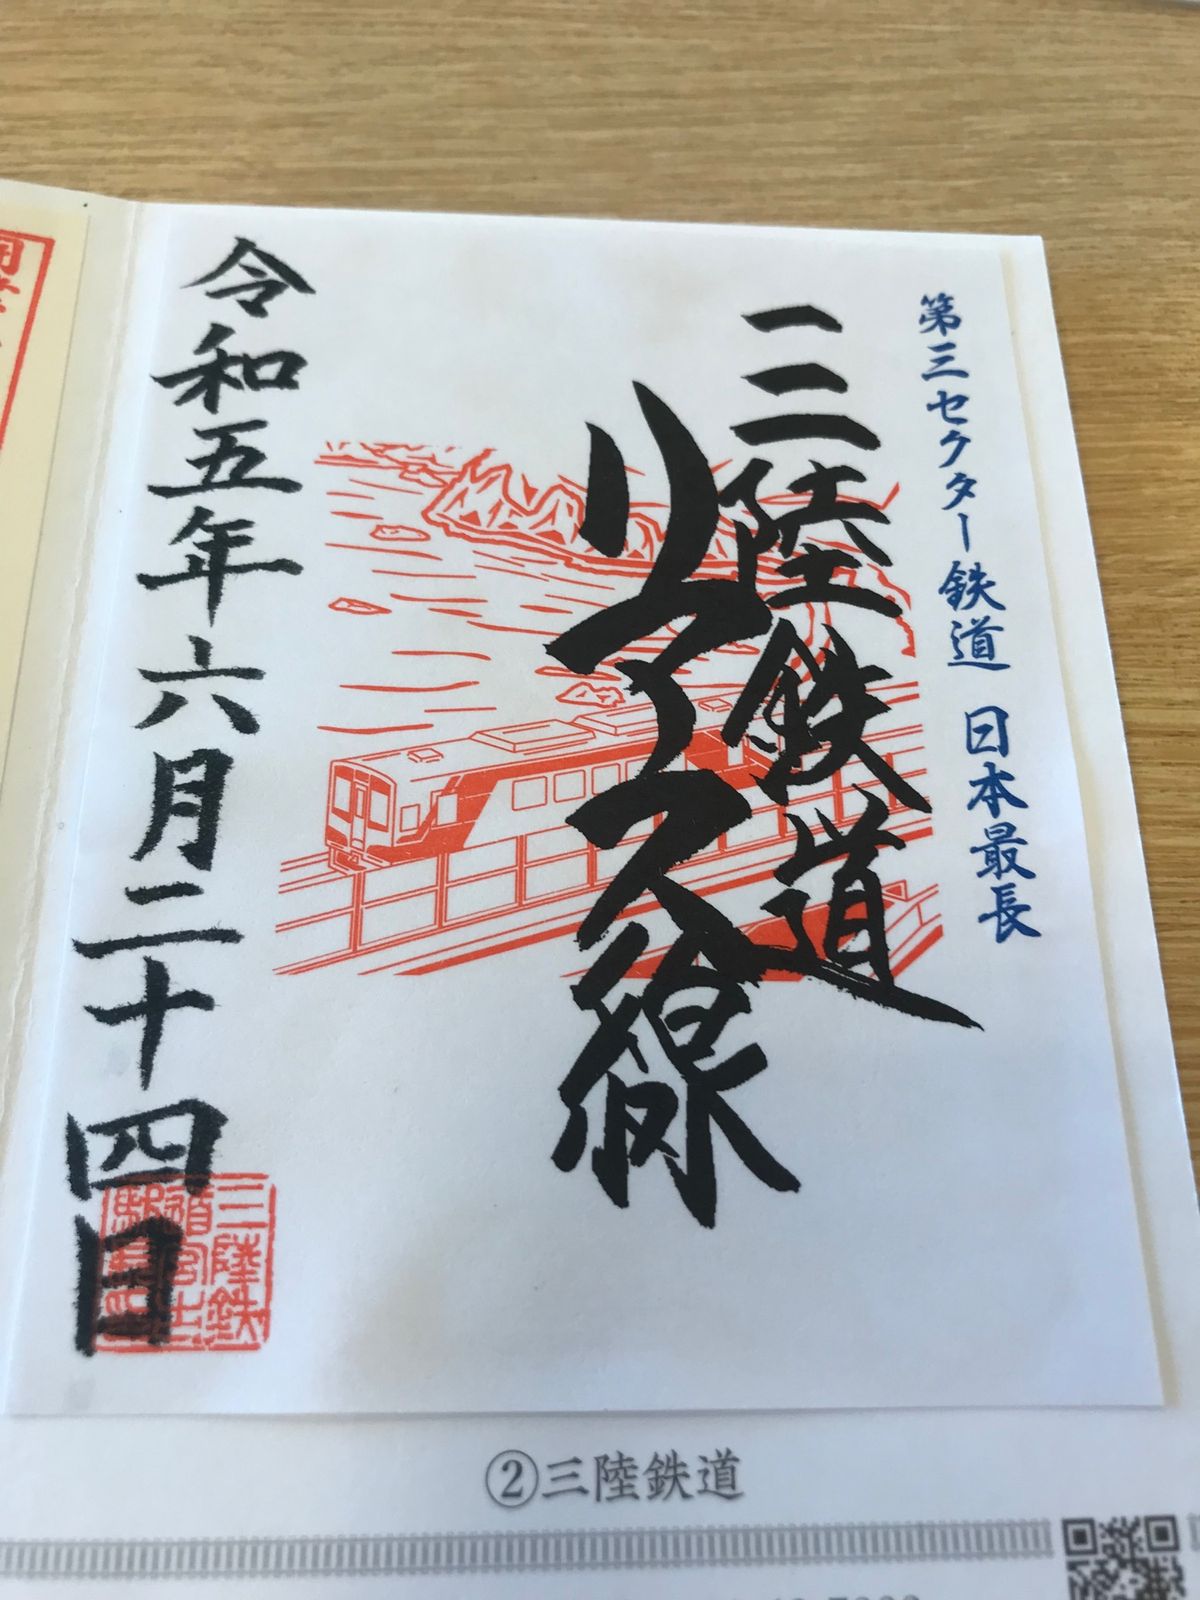 第三セクター鉄道 日本最長
三陸鉄道
リアス線
令和五年六月二十四日
三陸鉄
道宮古
②三陸鉄道